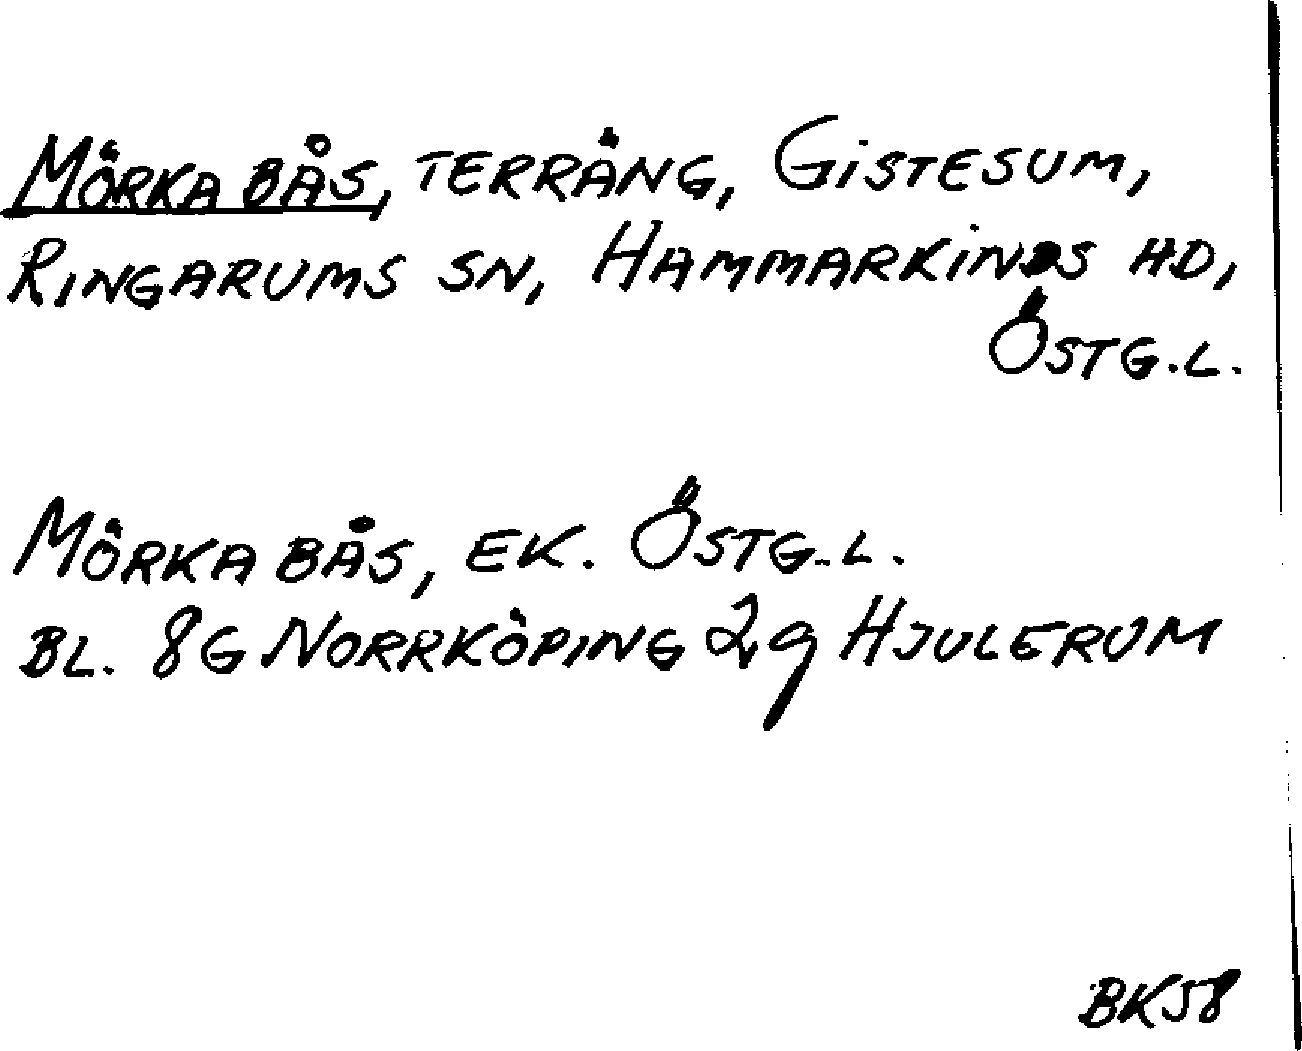 Mörka bås, terräng, Gistesum,
Ringarums sn, Hammarkinds hd,
Östg.l.
Mörka bås, ek. Östg.l.
bl. 8G Norrköping 2g Hjulerum
BK58